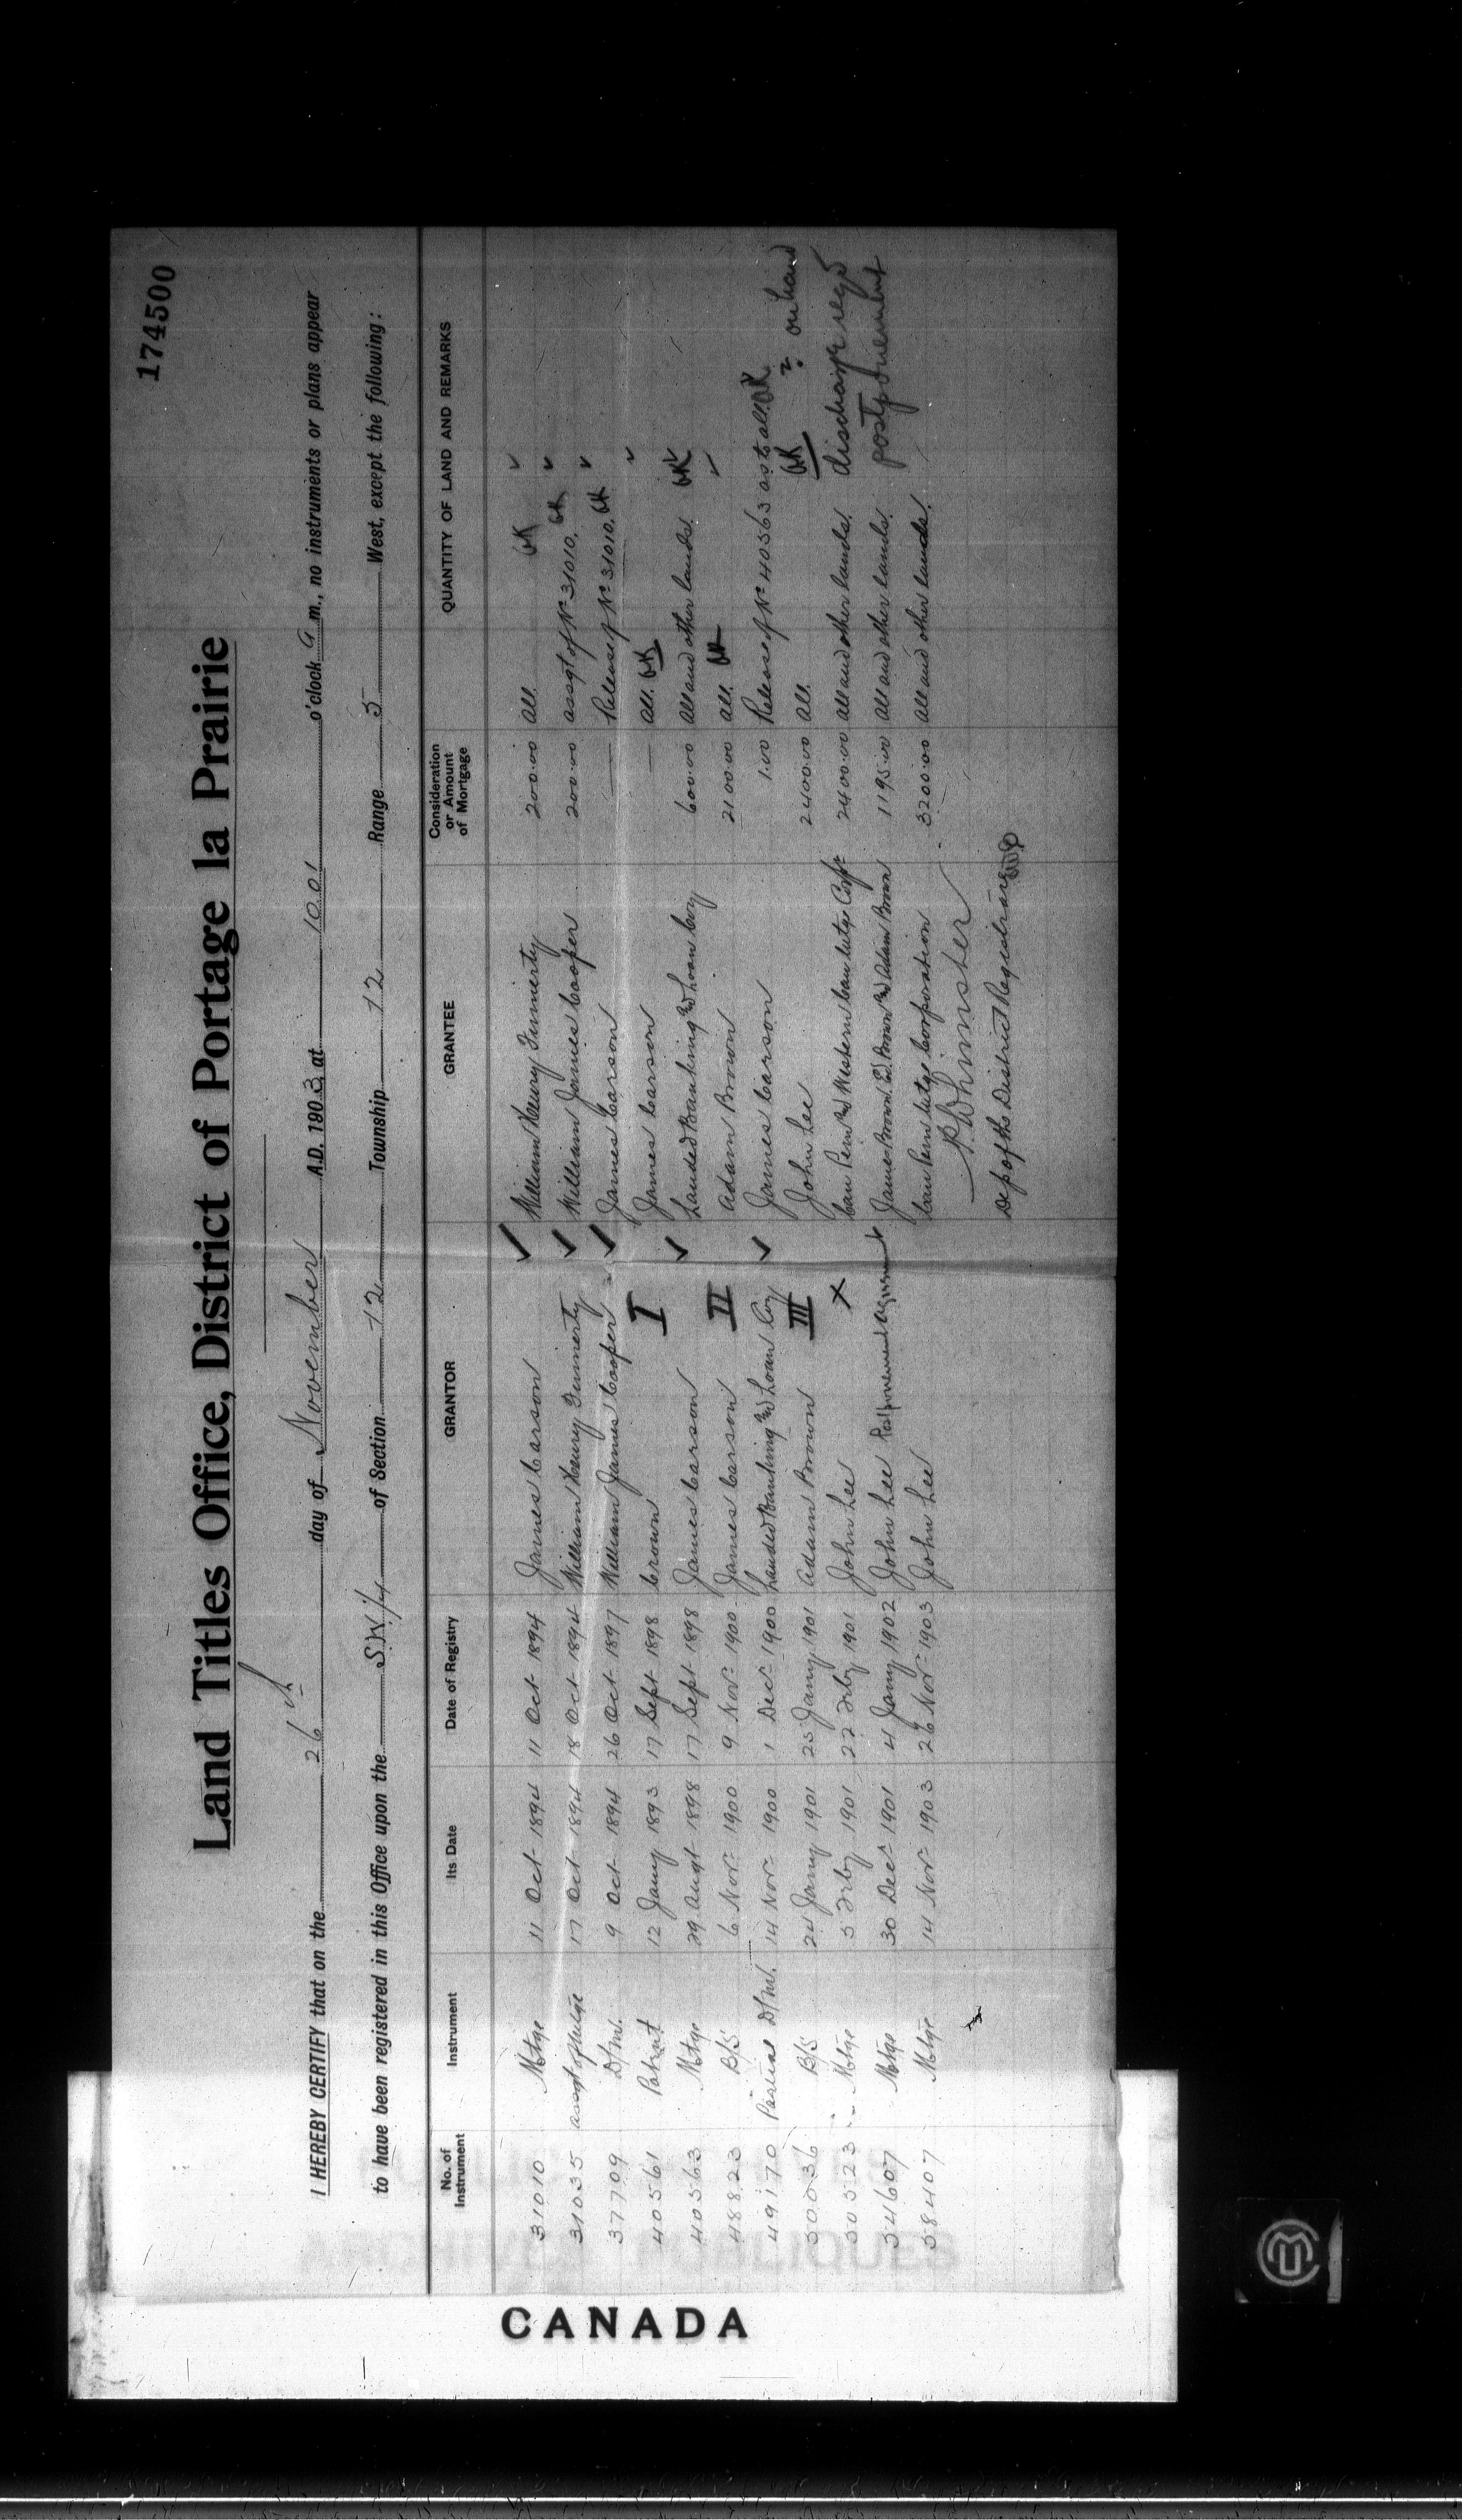 174500
Land Titles Office, District of Portage la Prairie
I HEREBY CERTIFY that on the 26th day of November A.D. 1903, at 10.01 o'clock a m., no instruments or plans appear
to have been registered in this Office upon the SW 1/4 of Section 12 Township 12 Range 5 West, except the following:
No. of Instrument Instrument Its Date Date of Registry GRANTOR GRANTEE Consideration or Amount of Mortgage QUANTITY OF LAND AND REMARKS
31010 Mtge 11 Oct 1894 11 Oct 1894 James Carson ✓ William Henry Finnerty 200.00 All. OK ✓
31035 Assgt of Mtge 17 Oct 1894 18 Oct 1894 William Henry Finnerty ✓ William James Cooper 200.00 assgt of No 31010. OK ✓
37709 D/M. 9 Oct 1894 26 Oct 1897 William James Cooper ✓ James Carson — Release of No 31010. OK ✓
40561 Patent 12 Jany 1893 17 Sept 1898 Crown I James Carson — All. OK ✓
40563 Mtge 29 Augt 1898 17 Sept 1898 James Carson ✓ Landed Banking and Loan Coy 600.00 All and other lands. OK ✓
48823 B/S 6 Nov 1900 9 Nov 1900 James Carson II Adam Brown 2100.00 All. OK ✓
49170 Partial D/M. 14 Nov 1900 1 Dec 1900 Landed Banking and Loan Coy ✓ James Carson 1.00 Release of No 40563 as to all. OK
50036 B/S 24 Jany 1901 25 Jany 1901 Adam Brown III John Lee 2400.00 All. OK ? on hand
50523 Mtge 5 Feby 1901 22 Feby 1901 John Lee X Can Perm and Western Can Mtge Corp 2400.00 All and other lands. discharge regd
54607 Mtge 30 Dec 1901 4 Jany 1902 John Lee Postponement agreement James Brown Ed. Brown and Adam Brown 1195.00 All and other lands. postponement
58407 Mtge 14 Nov 1903 26 Nov 1903 John Lee Can Perm Mtge Corporation 3200.00 All and other lands.
Dep of the District Registrar
PUBLIC ARCHIVES
ARCHIVES PUBLIQUES
CANADA